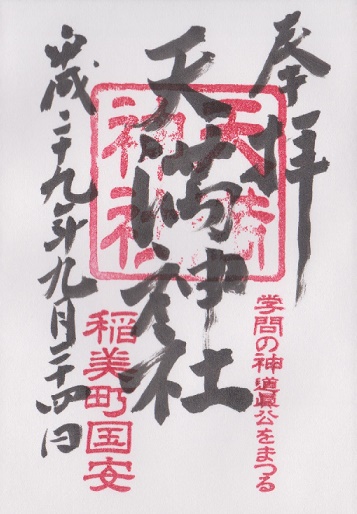 奉拝
学問の神道真公をまつる
天満神社
天満神社
稲美町国安
平成二十九年九月二十四日